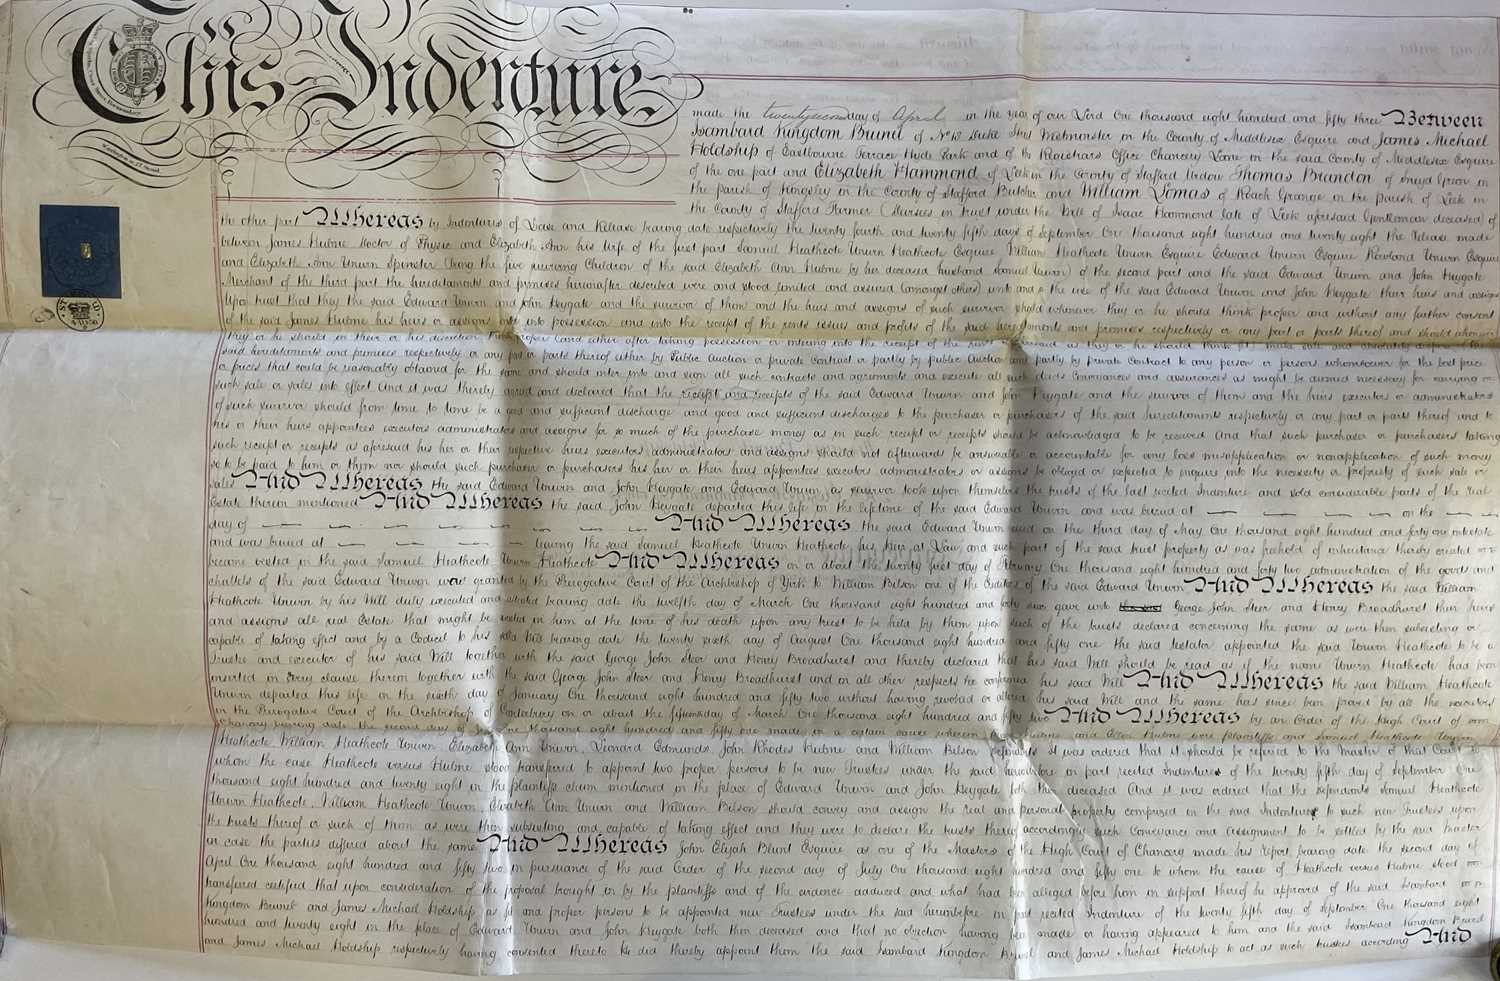 This Indenture
made the twenty second day of April in the year of our Lord One thousand eight hundred and fifty three Between
Isambard Kingdom Brunel of No 18 Duke Street Westminster in the County of Middlesex Esquire and James Michael
Holdship of Eastbourne Terrace Hyde Park and of the Registrars Office Chancery Lane in the said County of Middlesex Esquire
of the one part and Elizabeth Hammond of Leek in the County of Stafford Widow Thomas Brandon of in
the parish of Kingsley in the County of Stafford Butcher and William Lomas of Roach Grange in the parish of Leek in
the County of Stafford Farmer (Devisees in trust under the Will of Isaac Hammond late of Leek aforesaid Gentleman deceased) of
the other part Whereas by Indentures of Lease and Release bearing date respectively the twenty fourth and twenty fifth days of September One thousand eight hundred and twenty eight the Release made
between James Hulme Doctor of Physic and Elizabeth Ann his wife of the first part Samuel Heathcote Unwin Heathcote Esquire William Heathcote Unwin Esquire Edward Unwin Esquire Rowland Unwin Esquire
and Elizabeth Ann Unwin Spinster (being the five surviving Children of the said Elizabeth Ann Hulme by her deceased husband Samuel Unwin) of the second part and the said Edward Unwin and John Heygate
Merchant of the third part the hereditaments and premises hereinafter described were and stood limited and assured (amongst others) unto and to the use of the said Edward Unwin and John Heygate their heirs and assigns
Upon trust that they the said Edward Unwin and John Heygate and the survivor of them and the heirs and assigns of such survivor should whenever they or he should think proper and without any further consent
of the said James Hulme his heirs or assigns enter into possession and into the receipt of the rents issues and profits of the said hereditaments and premises respectively or any part or parts thereof and should whenever
they or he should in their or his discretion think proper (and either after taking possession or entering into the receipt of the rents as they or he should think fit) make sale and absolutely dispose of the
said hereditaments and premises respectively or any part or parts thereof either by Public Auction or private Contract or partly by public Auction and partly by private Contract to any person or persons whomsoever for the best price
or prices that could be reasonably obtained for the same and should enter into and sign all such contracts and agreements and execute all such deeds Conveyances and assurances as might be deemed necessary for carrying
such sale or sales into effect And it was thereby agreed and declared that the receipt and receipts of the said Edward Unwin and John Heygate and the survivor of them and the heirs executors or administrators
of such survivor should from time to time be a good and sufficient discharge and good and sufficient discharges to the purchaser or purchasers of the said hereditaments respectively or any part or parts thereof and to
his or their heirs appointees executors administrators and assigns for so much of the purchase money as in such receipt or receipts should be acknowledged to be received And that such purchaser or purchasers taking
such receipt or receipts as aforesaid his her or their respective heirs executors administrators and assigns should not afterwards be answerable or accountable for any loss misapplication or nonapplication of such money
so to be paid to him or them nor should such purchaser or purchasers his her or their heirs appointees executors administrators or assigns be obliged or expected to enquire into the necessity or propriety of such sale or
sales And Whereas the said Edward Unwin and John Heygate and Edward Unwin as survivor took upon themselves the trusts of the last recited Indenture and sold considerable parts of the real
Estate therein mentioned And Whereas the said John Heygate departed this life in the lifetime of the said Edward Unwin and was buried at on the
day of And Whereas the said Edward Unwin died on the third day of May One thousand eight hundred and forty one intestate
and was buried at leaving the said Samuel Heathcote Unwin Heathcote his heir at Law, and such part of the said trust property as was freehold of inheritance thereby created
became vested in the said Samuel Heathcote Unwin Heathcote And Whereas on or about the twenty first day of February One thousand eight hundred and forty two administration of the goods and
chattels of the said Edward Unwin was granted by the Prerogative Court of the Archbishop of York to William Belson one of the Creditors of the said Edward Unwin And Whereas the said William
Heathcote Unwin by his Will duly executed and attested bearing date the twelfth day of March One thousand eight hundred and forty seven gave unto George John Steer and Henry Broadhurst their heirs
and assigns all real Estate that might be vested in him at the time of his death upon any trust to be held by them upon such of the trusts declared concerning the same as were then subsisting or
capable of taking effect and by a Codicil to his said Will bearing date the twenty sixth day of August One thousand eight hundred and fifty one the said testator appointed the said Unwin Heathcote to be a
Trustee and executor of his said Will together with the said George John Steer and Henry Broadhurst and thereby declared that his said Will should be read as if the name Unwin Heathcote had been
inserted in every clause therein together with the said George John Steer and Henry Broadhurst and in all other respects he confirmed his said Will And Whereas the said William Heathcote
Unwin departed this life on the sixth day of January One thousand eight hundred and fifty two without having revoked or altered his said Will and the same has since been proved by all the executors
in the Prerogative Court of the Archbishop of Canterbury on or about the fifteenth day of March One thousand eight hundred and fifty two And Whereas by an Order of the High Court of
Chancery bearing date the second day of July One thousand eight hundred and fifty one made in a certain cause wherein and Ellen Hulme were plaintiffs and Samuel Heathcote Unwin
Heathcote William Heathcote Unwin Elizabeth Ann Unwin, Leonard Edmunds, John Rhodes Hulme and William Belson defendants It was ordered that it should be referred to the Master of that Court to
whom the case Heathcote versus Hulme stood transferred to appoint two proper persons to be new Trustees under the said hereinbefore in part recited Indentures of the twenty fifth day of September One
thousand eight hundred and twenty eight in the plaintiffs claim mentioned in the place of Edward Unwin and John Heygate both then deceased And it was ordered that the defendants Samuel Heathcote
Unwin Heathcote, William Heathcote Unwin, Elizabeth Ann Unwin and William Belson should convey and assign the real and personal property comprised in the said Indenture to such new Trustees upon
the trusts thereof or such of them as were then subsisting and capable of taking effect and they were to declare the trusts thereof accordingly such Conveyance and assignment to be settled by the said Master
in case the parties differed about the same And Whereas John Elijah Blunt Esquire as one of the Masters of the High Court of Chancery made his report bearing date the second day of
April One thousand eight hundred and fifty two in pursuance of the said Order of the second day of July One thousand eight hundred and fifty one to whom the cause of Heathcote versus Hulme stood
transferred certified that upon consideration of the proposal brought in by the plaintiffs and of the evidence adduced and what had been alleged before him in support thereof he approved of the said Isambard
Kingdom Brunel and James Michael Holdship as fit and proper persons to be appointed new Trustees under the said hereinbefore in part recited Indenture of the twenty fifth day of September One thousand eight
hundred and twenty eight in the place of Edward Unwin and John Heygate both then deceased and that no objection having been made or having appeared to him and the said Isambard Kingdom Brunel
and James Michael Holdship respectively having consented thereto He did thereby appoint them the said Isambard Kingdom Brunel and James Michael Holdship to act as such trustees according And